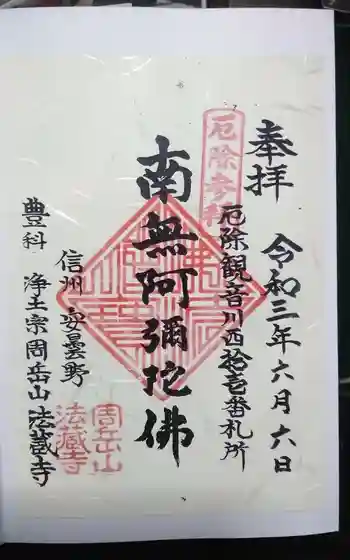 奉拝
令和三年六月六日
厄除参拝
厄除観音川西拾壱番札所
南無阿彌陀佛
信州 安曇野
豊科 浄土宗周岳山法蔵寺
周岳山
法蔵寺